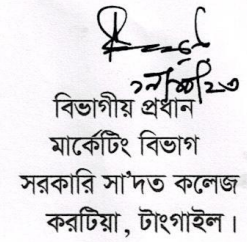 বিভাগীয় প্রধান
মার্কেটিং বিভাগ
সরকারি সা'দত কলেজ
করটিয়া, টাংগাইল।